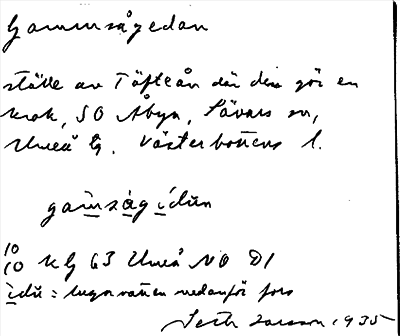 Gammsågedan
ställe av Täfteån där den gör en
krok, SO Åbyn, Sävars sn,
Umeå lg. Västerbottens l.
gam̲sågi̲dun
10
10 kbl 63 Umeå NO D1
i̲du = lugnvatten nedanför fors
Seth Larsson 1935